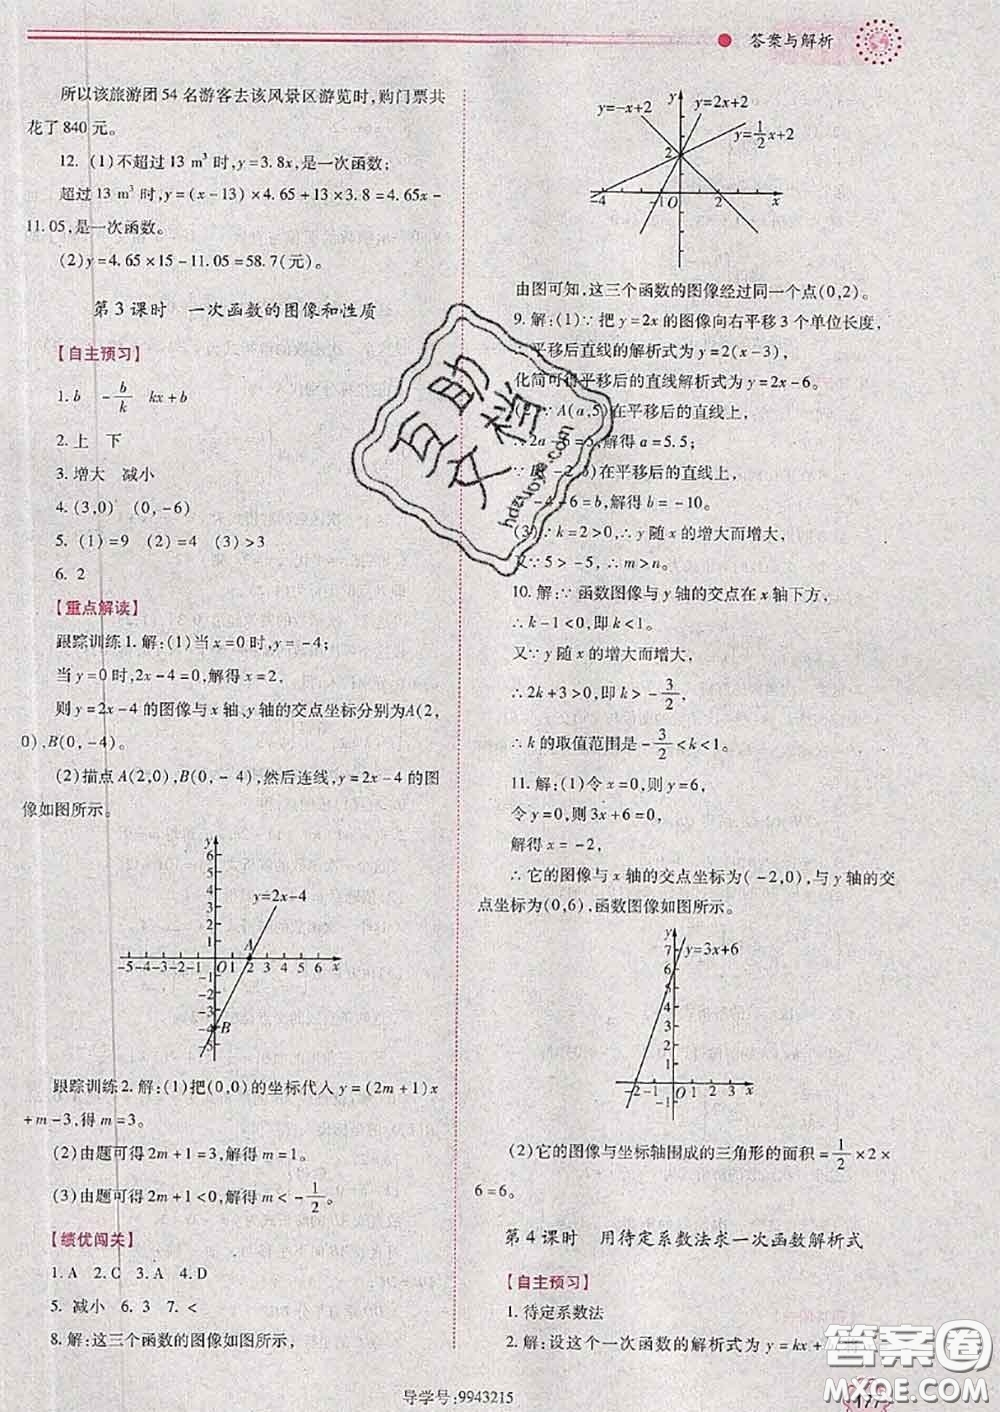 答案与解析
所以该旅游团 54 名游客去该风景区游览时,购门票共
花了 840 元。
12. (1)不超过 13 m³ 时,y=3.8x,是一次函数;
超过 13 m³ 时,y=(x-13)×4.65+13×3.8=4.65x-
11.05,是一次函数。
(2)y=4.65×15-11.05=58.7(元)。
第 3 课时 一次函数的图像和性质
【自主预习】
1. b -b/k kx+b
2. 上 下
3. 增大 减小
4. (3,0) (0,-6)
5. (1)=9 (2)=4 (3)>3
6. 2
【重点解读】
跟踪训练 1. 解:(1)当 x=0 时,y=-4;
当 y=0 时,2x-4=0,解得 x=2,
则 y=2x-4 的图像与 x 轴、y 轴的交点坐标分别为A(2,
0),B(0,-4)。
(2)描点 A(2,0),B(0,-4),然后连线,y=2x-4 的图
像如图所示。
y
6
5
4
3
2
1
y=2x-4
A
-5 -4 -3 -2 -1 O 1 2 3 4 5 6 x
-1
-2
-3
-4
-5
B
跟踪训练 2. 解:(1)把(0,0)的坐标代入 y=(2m+1)x
+m-3,得 m=3。
(2)由题可得 2m+1=3,解得 m=1。
(3)由题可得 2m+1<0,解得 m<-1/2。
【绩优闯关】
1. A 2. C 3. A 4. D
5. 减小 6. 3 7. <
8. 解:这三个函数的图像如图所示,
y=-x+2
y
y=2x+2
y=1/2x+2
2
-4 -1 O 2 x
由图可知,这三个函数的图像经过同一个点(0,2)。
9. 解:(1)∵把 y=2x 的图像向右平移 3 个单位长度,
∴平移后直线的解析式为 y=2(x-3),
化简可得平移后的直线解析式为 y=2x-6。
(2)∵A(a,5)在平移后的直线上,
∴2a-6=5,解得 a=5.5;
-2,b)在平移后的直线上,
-4-6=b,解得 b=-10。
(3)∵k=2>0,∴y 随 x 的增大而增大,
又∵5>-5,∴m>n。
10. 解:∵函数图像与 y 轴的交点在 x 轴下方,
∴k-1<0,即 k<1。
又∵y 随 x 的增大而增大,
∴2k+3>0,即 k>-3/2,
∴k 的取值范围是-3/2<k<1。
11. 解:(1)令 x=0,则 y=6,
令 y=0,则 3x+6=0,
解得 x=-2,
∴它的图像与 x 轴的交点坐标为(-2,0),与 y 轴的交
点坐标为(0,6),函数图像如图所示。
y
7
6
5
4
3
2
1
y=3x+6
-2 -1 O 1 2 3 4 5 6 7 x
-1
(2)它的图像与坐标轴围成的三角形的面积=1/2×2×
6=6。
第 4 课时 用待定系数法求一次函数解析式
【自主预习】
1. 待定系数法
2. 解:设这个一次函数的解析式为 y=kx+
导学号:9943215
177
互助
文档
hdzuoye.com
答案圈
MXQE.COM